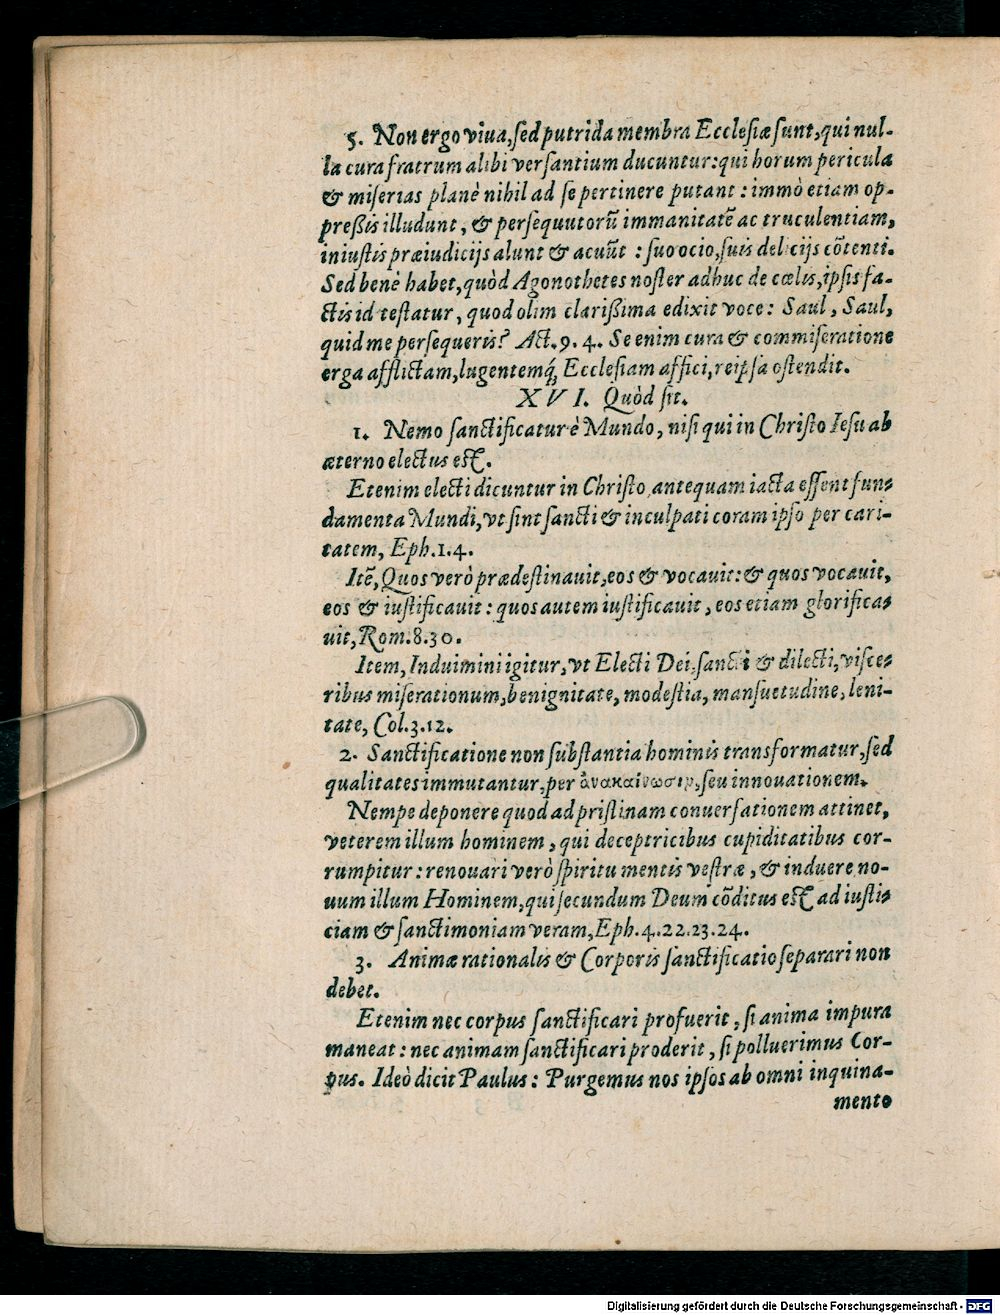 5. Non ergo viua, sed putrida membra Ecclesiæ sunt, qui nul-
la cura fratrum alibi versantium ducuntur: qui horum pericula
& miserias planè nihil ad se pertinere putant: immò etiam op-
preßis illudunt, & persequutorũ immanitatẽ ac truculentiam,
iniustis præiudicijs alunt & acuũt : suo ocio, suis delicijs cõtenti.
Sed benè habet, quòd Agonothetes noster adhuc de cœlis, ipsis fa-
ctis id testatur, quod olim clarißima edixit voce: Saul, Saul,
quid me persequeris? Act. 9. 4. Se enim cura & commiseratione
erga afflictam, lugentemq́; Ecclesiam affici, reipsa ostendit.
XVI. Quòd sit.
1. Nemo sanctificatur è Mundo, nisi qui in Christo Iesu ab
æterno electus est.
Etenim electi dicuntur in Christo, antequam iacta essent fun-
damenta Mundi, vt sint sancti & inculpati coram ipso per cari-
tatem, Eph. 1. 4.
Itẽ, Quos verò prædestinauit, eos & vocauit: & quos vocauit,
eos & iustificauit: quos autem iustificauit, eos etiam glorifica-
uit, Rom. 8. 30.
Item, Induimini igitur, vt Electi Dei, sancti & dilecti, visce-
ribus miserationum, benignitate, modestia, mansuetudine, leni-
tate, Col. 3. 12.
2. Sanctificatione non substantia hominis transformatur, sed
qualitates immutantur, per ἀνακαίνωσιν, seu innouationem.
Nempe deponere quod ad pristinam conuersationem attinet,
veterem illum hominem, qui deceptricibus cupiditatibus cor-
rumpitur: renouari verò spiritu mentis vestræ, & induere no-
uum illum Hominem, qui secundum Deum cõditus est ad iusti-
ciam & sanctimoniam veram, Eph. 4. 22. 23. 24.
3. Animæ rationalis & Corporis sanctificatio separari non
debet.
Etenim nec corpus sanctificari profuerit, si anima impura
maneat: nec animam sanctificari proderit, si polluerimus Cor-
pus. Ideò dicit Paulus: Purgemus nos ipsos ab omni inquina-
mento
Digitalisierung gefördert durch die Deutsche Forschungsgemeinschaft - DFG